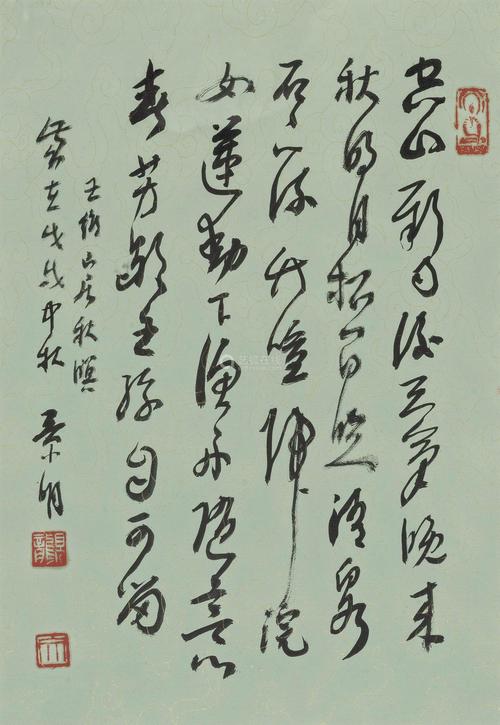 空山新雨後天氣晚来
秋明月松間照清泉
石上流竹喧歸浣
女蓮動下漁舟随意
春芳歇王孫自可留
王維山居秋暝
歲在戊戌中秋